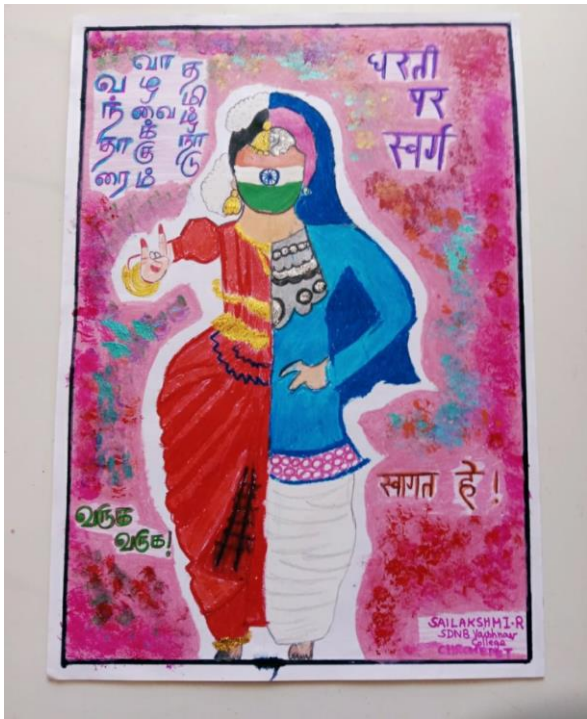 வந்தாரை
வாழவைக்கும்
தமிழ்நாடு
धरती
पर
स्वर्ग
स्वागत हे !
வருக
வருக!
SAILAKSHMI-R
SDNB Vaishnav
College
CHROMEPET